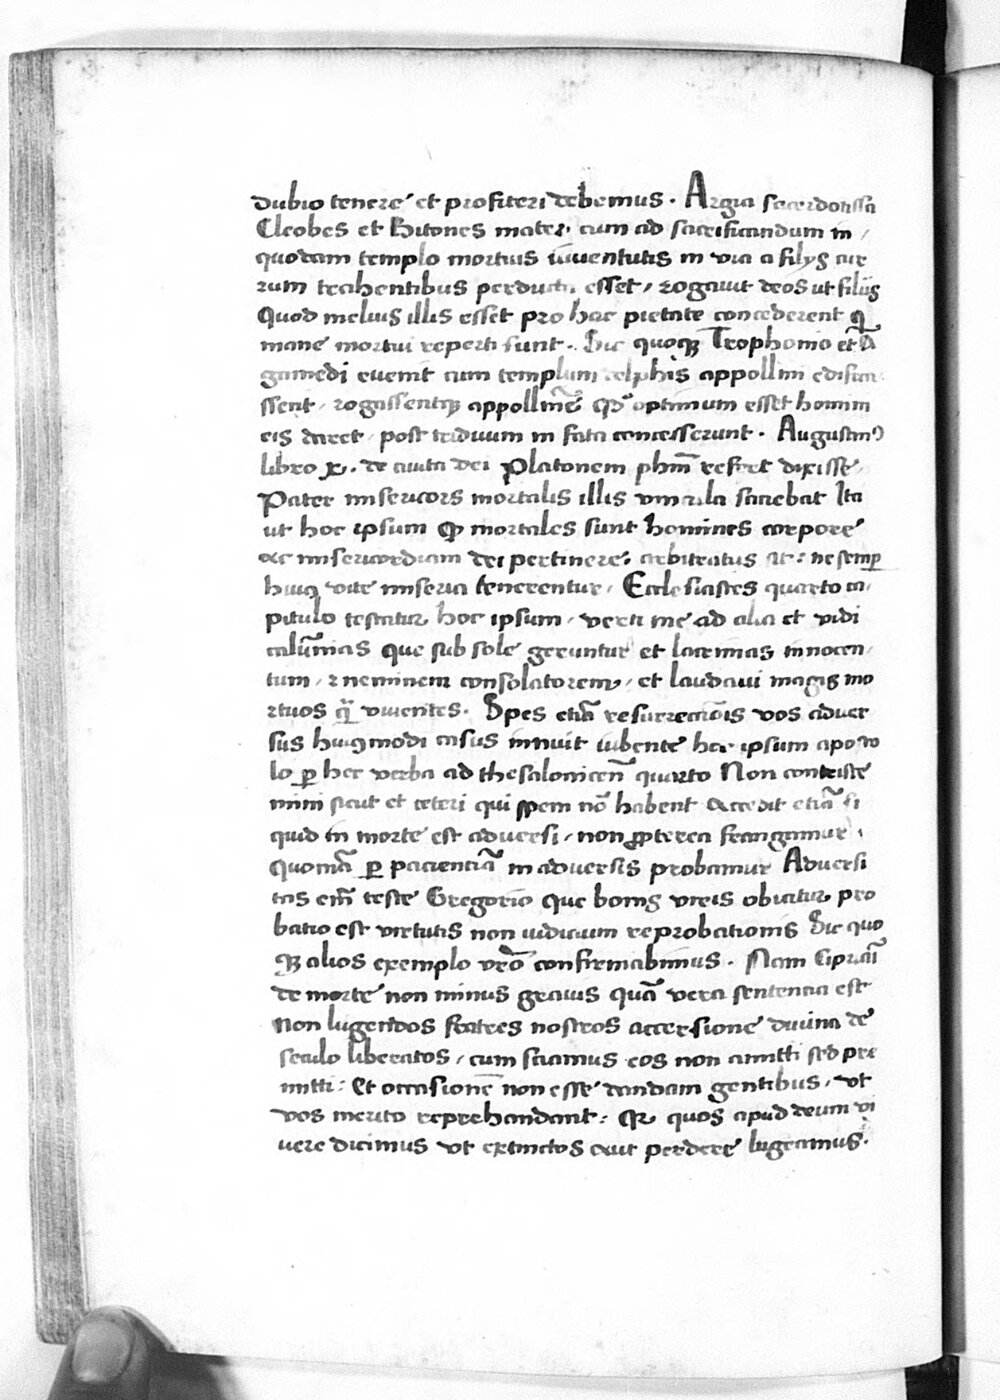 dubio tenere et profiteri debemus . Argia sacerdotissa
Cleobes et Bitones mater . cum ad sacrificandum in /
quodam templo mortuis iuuentutis in via a filijs cur
rum trahentibus perducta esset / rogauit deos ut filijs
Quod melius illis esset pro hac pietate concederent q̃
mane mortui reperti sunt . Sic quoqꝫ Trophonio et A
gamedi euenit cum templum delphis appollini edifica
ssent / rogassentqꝫ appollinẽ qd̾ optimum esset homin
eis daret / post triduum in fata concesserunt . Augustinꝰ
libro x . de ciuita dei Platonem phm̃ refert dixisse
Pater misericors mortalis illis vincula faciebat Ita
ut hoc ipsum ꝙ mortales sunt homines corpore
ac misericordiam dei pertinere . arbitratus sit : ne semꝑ
huiꝰ vite miseria tenerentur / Ecclesiastes quarto ca /
pitulo testatur hoc ipsum / verti me ad alia et vidi
calũnias que sub sole geruntur et lacrimas innocen /
tum / ⁊ neminem consolatorem / et laudaui magis mo
rtuos q̃ viuentes . Spes etiã resurrectiõis vos aduer
sus huiꝰmodi casus innuit iubente hec ipsum aposto
lo ꝑ hec verba ad thesalonicen̄ quarto Non contriste
mini sicut et ceteri qui spem nõ habent Accedit etiã si
quid in morte est aduersi / non ꝓpterea frangamur /
Quoniã ꝑ pacientiã in aduersis probamur Aduersi
tas em̃ teste Gregorio que bonis viris obicitur pro
batio est virtutis non iudicium reprobationis Sic quo
qꝫ alios exemplo vr̃o confirmabimus . Nam Cipriani
de morte non minus grauis quã vera sententia est
Non lugendos fratres nostros accersione diuina de
seculo liberatos / cum sciamus eos non amitti sed pre
mitti : Et occasionẽ non esse dandam gentibus / vt
vos merito reprehandant : Qꝛ quos apud deum vi
uere dicimus vt extinctos aut perdere lugeamus .